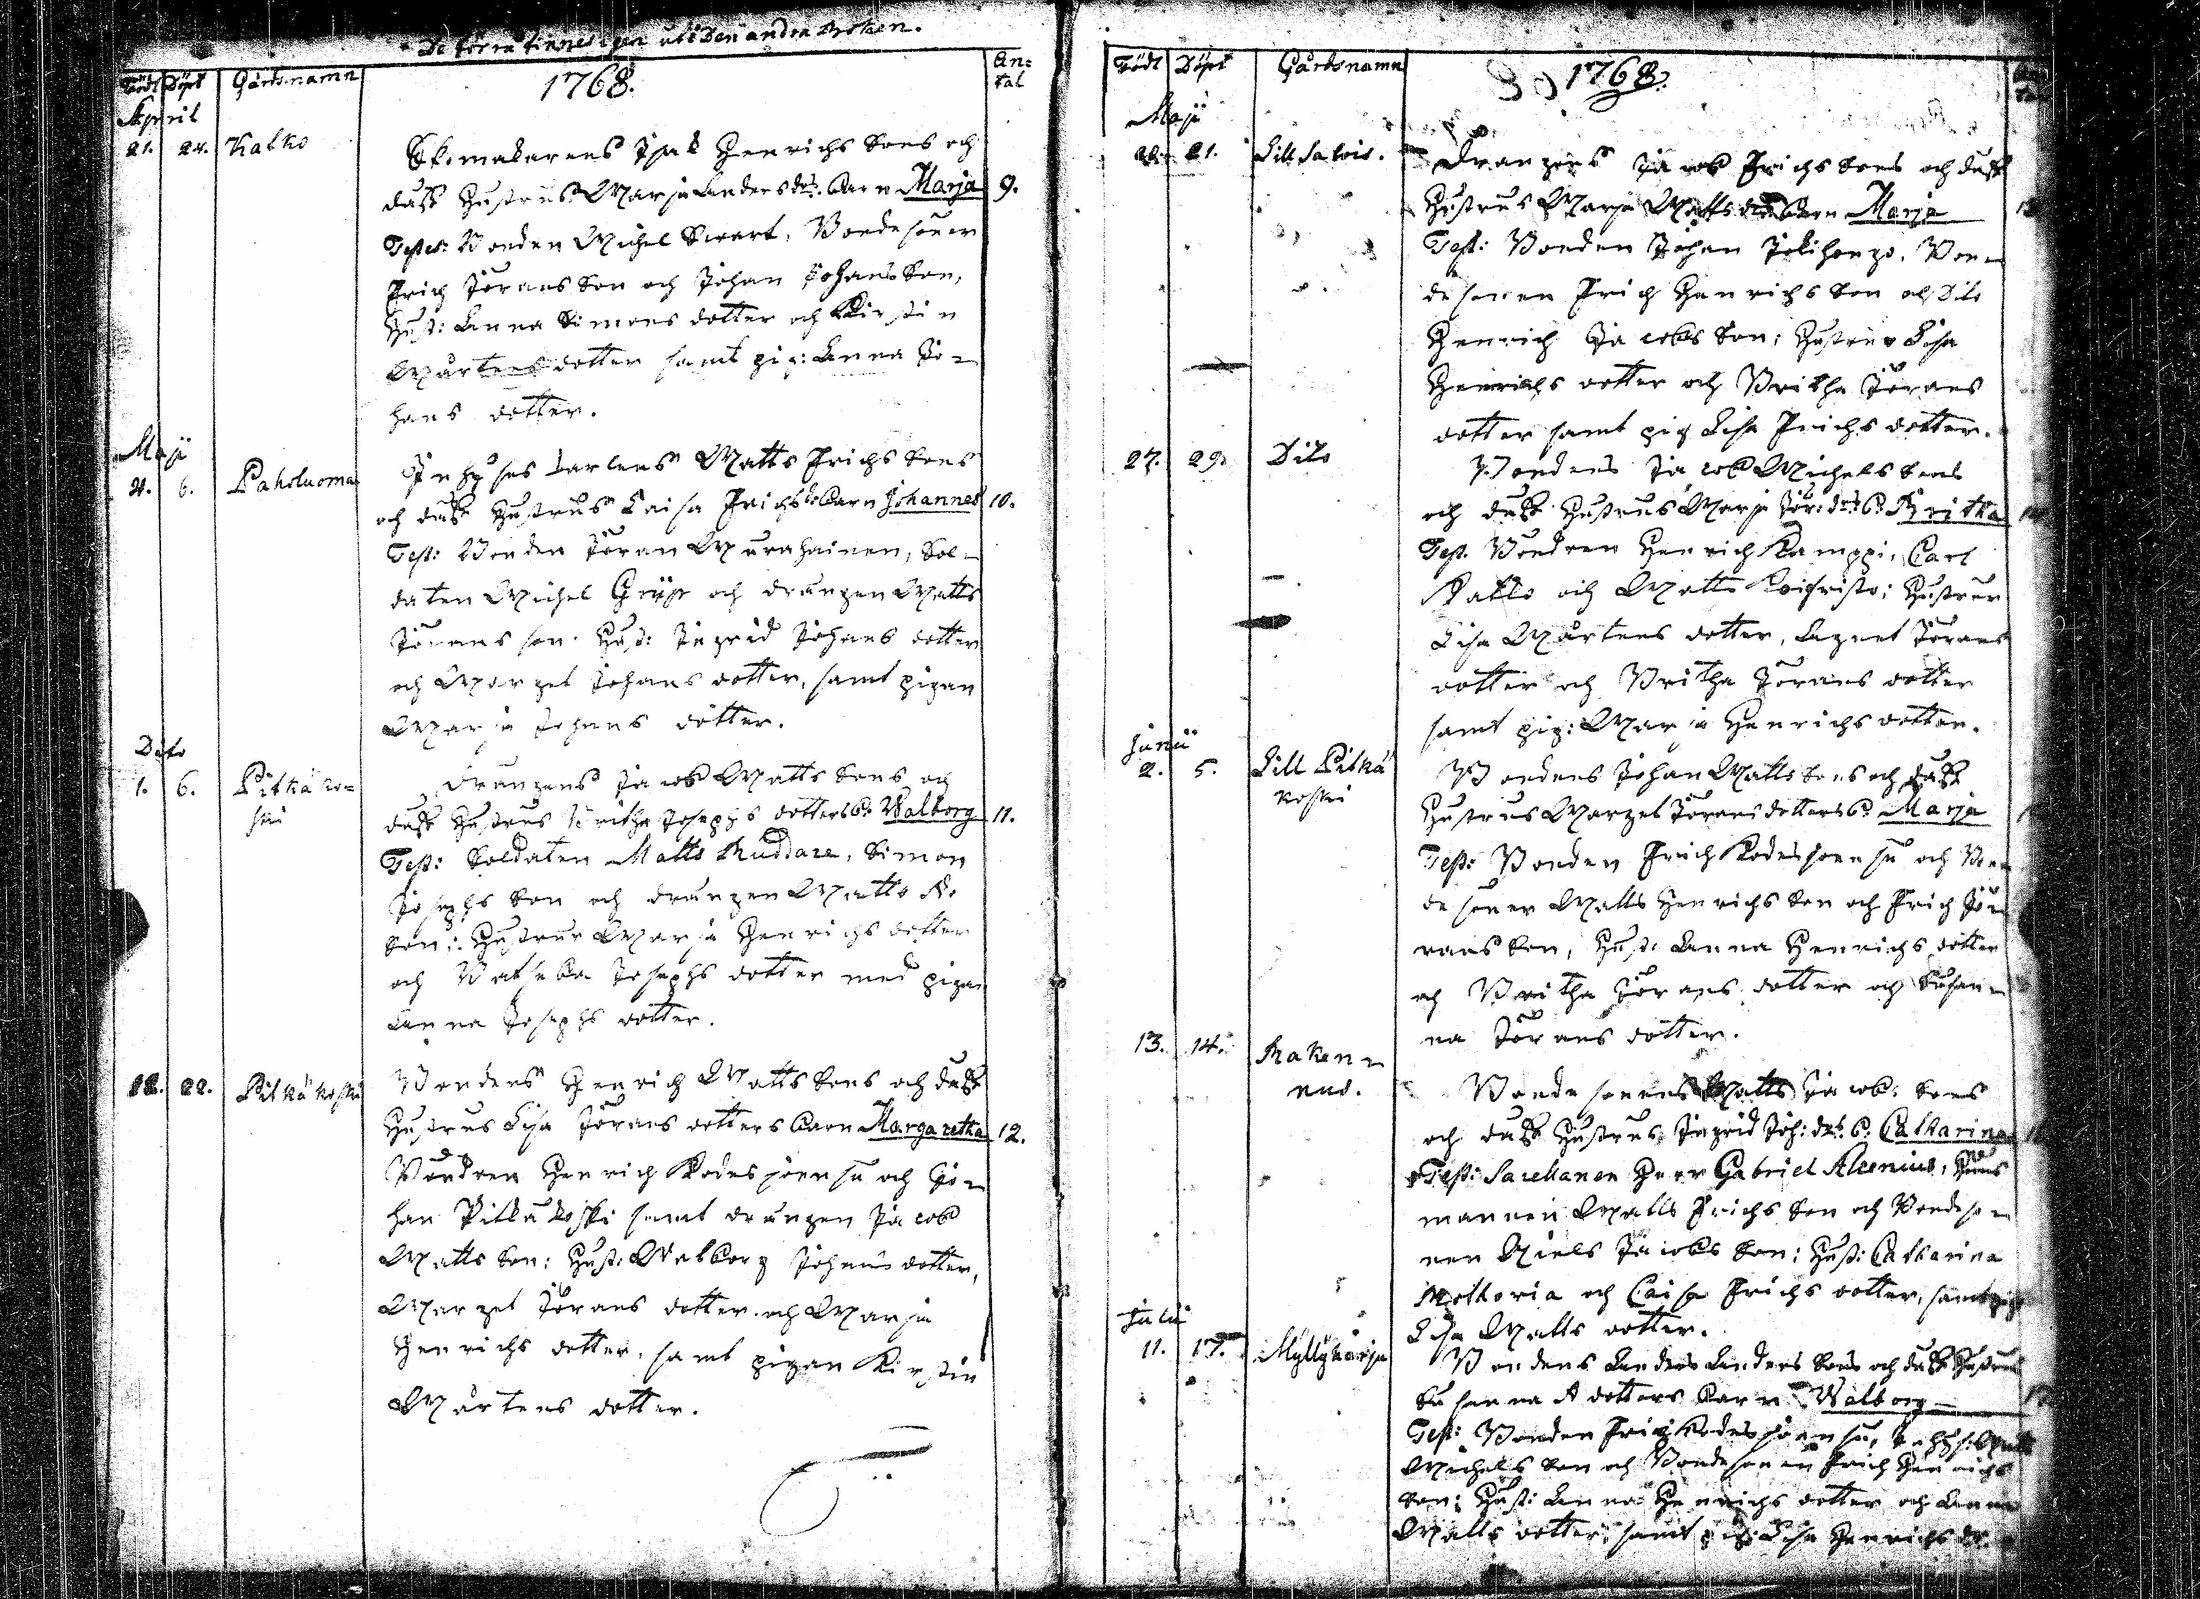 De förra finnes igen uti den andra boken.
Född Döpt Gårdsnamn 1768. An=
tal
April
21. 24. Katko Skomakarens Isak Henrichs Sons och
dess Hustrus Marja Anders drs. Barn Marja 9.
Testes: Bonden Michel Swart, Bondesöner
Erich Jörans Son och Johan Johans Son,
Hust: Anna Simons dotter och Kirstin
Mårtens dotter samt pig: Anna Jo=
hans dotter.
Maji
4. 6. Paholuoma Inhyses karlens Matts Erichs Sons
och dess Hustrus Caisa Erichs Barn Johannes 10.
Test: Bonden Jöran Murahainen, Sol=
daten Michel och drängen Matts
Jörans son. Hust: Ingrid Johans dotter
och Marget Johans dotter, samt pigan
Marja Johans dotter.
Dito
1. 6. Pitkäko=
ski
Drängens Jacob Matts Sons och
dess Hustrus Britha Josephs dotters B: Walborg 11.
Test: Soldaten Matts Ruddare, Simon
Josephs Son och drängen Matts
Son: Hustrur Marja Henrichs dotter
och Walborg Josephs dotter med pigan
Anna Josephs dotter.
18. 22. Pitkäkoski Bondens Henrich Matts Sons och dess
Hustrus Lisa Jörans dotters Barn Margaretha 12.
Bönderna Henrich Kodesjoensu och Jo=
han Pitkäkoski samt drängen Jacob
Matts Son: Hust: Walborg Johans dotter,
Marget Jörans dotter och Marja
Henrichs dotter, samt pigan Kirstin
Mårtens dotter.
Född Döpt Gårdsnamn 1768.
Maji
21. Lill Salois. Drängens Jacob Erichs Sons och dess
Hustrus Marja Matts drs Barn Marja
Test: Bonden Johan Bon=
desonen Erich Henrichs Son och Dito
Henrich Jacobs Son; Hustrur Lisa
Henrichs dotter och Britha Jörans
dotter samt pig Lisa Erichs dotter.
27. 29. Dito Bondens Jacob Michels Sons
och dess Hustrus Marja Jör: drs B: Britha
Test. Bönderna Henrich Kamppi, Carl
Katko och Matts Koifristo; Hustrur
Lisa Mårtens dotter, Agnet Jörans
dotter och Britha Jörans dotter
samt pig: Marja Henrichs dotter.
Junii
2. 5. Lill Pitkä
koski
Bondens Johan Matts Sons och dess
Hustrus Marget Jörans dotters B: Marja
Test: Bonden Erich Kodesjoensu och Bon=
desöner Matts Henrichs Son och Erich Jö=
rans Son, Hust: Anna Henrichs dotter
och Britha Jörans dotter och Susan=
na Jörans dotter.
13. 14. Raken=
nus.
Bondesonens Matts Jacob: Sons
och dess Hustrus Ingrid Joh: drs B: Catharina
Test: Sacellanen Herr Gabriel Alcenius, Hus
mannen Matts Erichs Son och Bondeso=
nen Niels Jacobs Son: Hust: Catharina
och Caisa Erichs dotter, samt pig
Lisa Matts dotter.
Julii
11. 17. Myllykärju Bondens Anders Anders Sons och dess Hustrus
Susanna A dotters Barn Walborg
Test: Bonden Erich Kodesjoensu,
Michels Son och Bondesonen Erich Henrichs
Son; Hust: Anna Henrichs dotter och Anna
Matts dotter, samt pig: Lisa Henrichs dr.